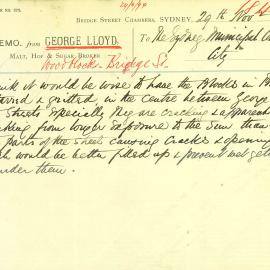 29/11/94
BRIDGE STREET CHAMBERS, SYDNEY, 29th Nov
MEMO. from GEORGE LLOYD, To The Sydney Municipal
MALT, HOP & SUGAR BROKER City
Woodblocks Bridge St.
it would be wise to have the Blocks in
& gritted, in the centre between George
Streets Especially They are cracking & apparent
from longer Exposure to the Sun than
parts of the Street causing Cracks & opening
would be better filled up & prevent wet get
under them.